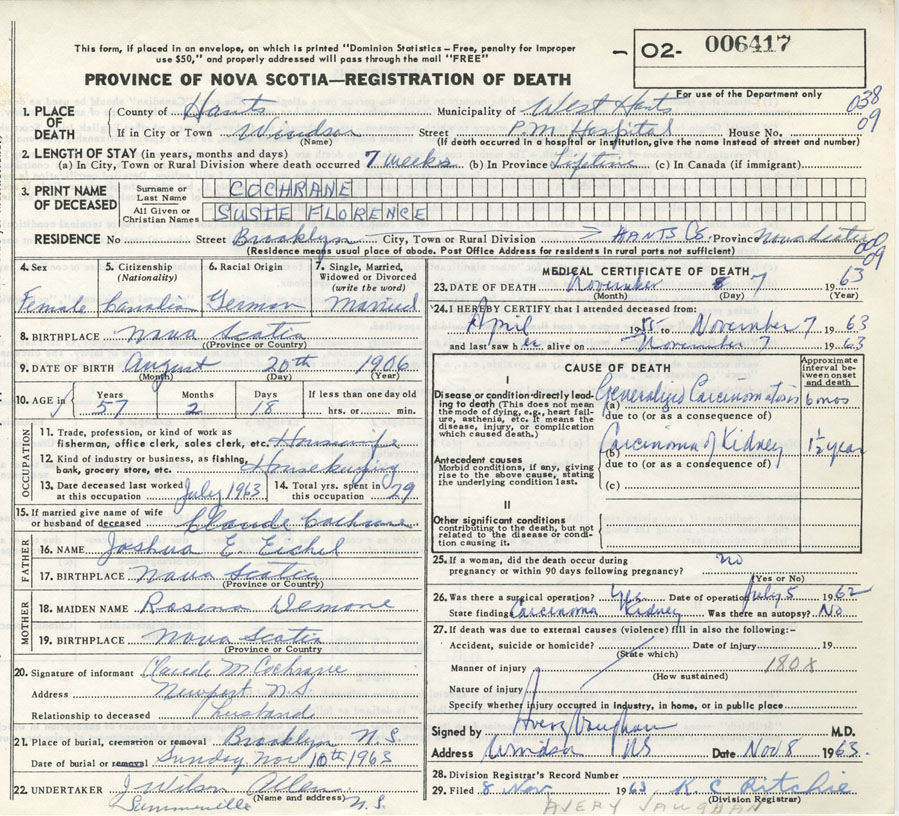 This form, if placed in an envelope, on which is printed "Dominion Statistics – Free, penalty for improper
use $50," and properly addressed will pass through the mail "FREE"
– O2- 006417
PROVINCE OF NOVA SCOTIA—REGISTRATION OF DEATH
For use of the Department only
038
09
1. PLACE OF DEATH
County of Hants Municipality of West Hants
If in City or Town Windsor Street P.M. Hospital House No.
(Name) (If death occurred in a hospital or institution, give the name instead of street and number)
2. LENGTH OF STAY (in years, months and days)
(a) In City, Town or Rural Division where death occurred 7 weeks (b) In Province Lifetime (c) In Canada (if immigrant)
3. PRINT NAME OF DECEASED
Surname or Last Name COCHRANE
All Given or Christian Names SUSIE FLORENCE
RESIDENCE No Street Brooklyn City, Town or Rural Division HANTS Co. Province Nova Scotia
(Residence means usual place of abode. Post Office Address for residents in rural parts not sufficient)
000
09
4. Sex
Female
5. Citizenship (Nationality)
Canadian
6. Racial Origin
German
7. Single, Married, Widowed or Divorced (write the word)
Married
8. BIRTHPLACE Nova Scotia
(Province or Country)
9. DATE OF BIRTH August 20th 1906
(Month) (Day) (Year)
10. AGE in Years 57 Months 2 Days 18 If less than one day old
hrs. or min.
OCCUPATION
11. Trade, profession, or kind of work as
fisherman, office clerk, sales clerk, etc. Housewife
12. Kind of industry or business, as fishing,
bank, grocery store, etc. Housekeeping
13. Date deceased last worked at this occupation July 1963
14. Total yrs. spent in this occupation 29
15. If married give name of wife
or husband of deceased Claude Cochrane
FATHER
16. NAME Joshua E. Eichel
17. BIRTHPLACE Nova Scotia
(Province or Country)
MOTHER
18. MAIDEN NAME Rosena Demone
19. BIRTHPLACE Nova Scotia
(Province or Country
20. Signature of informant Claude M. Cochrane
Address Newport N.S.
Relationship to deceased Husband
21. Place of burial, cremation or removal Brooklyn N.S.
Date of burial or removal Sunday, Nov 10th 1963
22. UNDERTAKER J. Wilson Allen
(Name and address)
Summerville N.S.
MEDICAL CERTIFICATE OF DEATH
23. DATE OF DEATH November 7 1963
(Month) (Day) (Year)
24. I HEREBY CERTIFY that I attended deceased from:
April 19 to November 7 1963
and last saw her alive on November 7 1963
CAUSE OF DEATH
Approximate interval between onset and death
I
Disease or condition directly leading to death (This does not mean the mode of dying, e.g., heart failure, asthenia, etc. It means the disease, injury, or complication which caused death.)
(a) Generalized Carcinomatosis 6 mos
due to (or as a consequence of)
Antecedent causes
Morbid conditions, if any, giving rise to the above cause, stating the underlying condition last.
(b) Carcinoma of Kidney 1½ year
due to (or as a consequence of)
(c)
II
Other significant conditions
contributing to the death, but not related to the disease or condition causing it.
25. If a woman, did the death occur during
pregnancy or within 90 days following pregnancy? no
(Yes or No)
26. Was there a surgical operation? Yes Date of operation July 5 1962
State finding Carcinoma Kidney Was there an autopsy? No
27. If death was due to external causes (violence) fill in also the following:–
Accident, suicide or homicide? Date of injury 19
(State which)
Manner of injury 180X
(How sustained)
Nature of injury
Specify whether injury occurred in Industry, in home, or in public place
Signed by Avery Vaughan M.D.
Address Windsor NS Date Nov 8 1963.
28. Division Registrar's Record Number
29. Filed 8 Nov 1963 K. C. Ritchie
(Division Registrar)
AVERY VAUGHAN